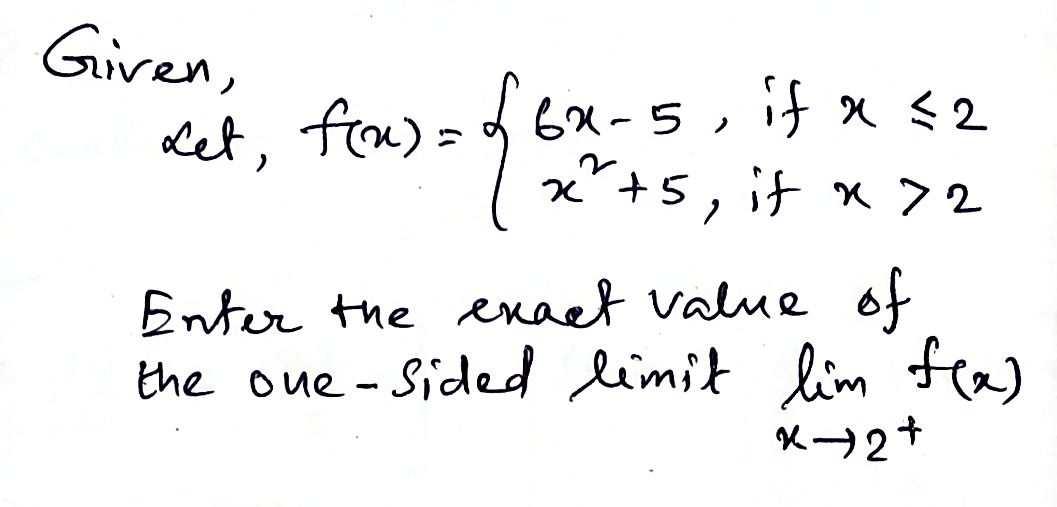 Given,
Let, f(x) = { 6x - 5 , if x ≤ 2
x² + 5 , if x > 2
Enter the exact value of
the one-sided limit lim f(x)
x→2+